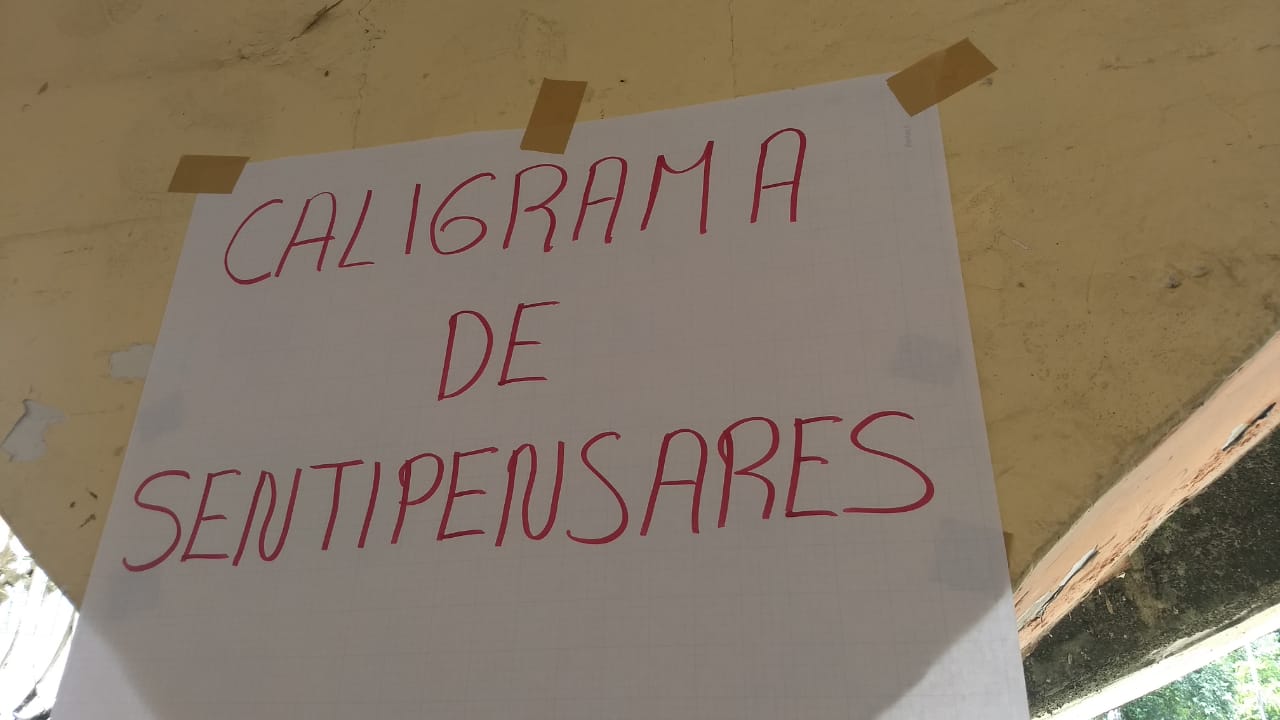 CALIGRAMA
DE
SENTIPENSARES